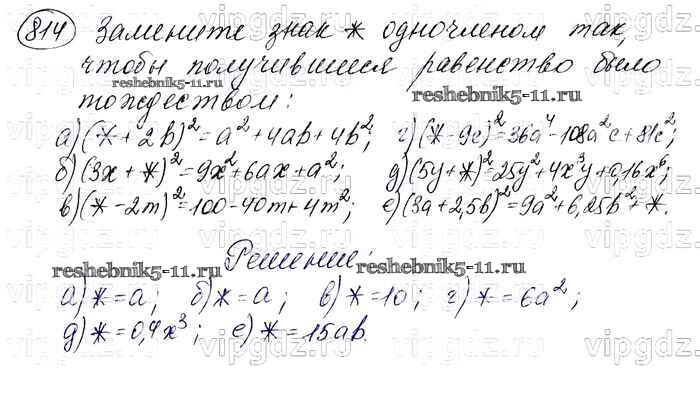 814 Замените знак * одночленом так,
чтобы получившиеся равенство было
тождеством:
reshebnik5-11.ru
reshebnik5-11.ru
а) (* + 2b)² = a² + 4ab + 4b²; г) (* - 9c)² = 36a⁴ - 108a²c + 81c²;
б) (3x + *)² = 9x² + 6ax + a²; д) (5y + *)² = 25y² + 4x³y + 0,16x⁶;
в) (* - 2m)² = 100 - 40m + 4m²; е) (3a + 2,5b)² = 9a² + 6,25b² + *.
Решение:
reshebnik5-11.ru
reshebnik5-11.ru
а) * = a; б) * = a; в) * = 10; г) * = 6a²;
д) * = 0,4x³; е) * = 15ab.